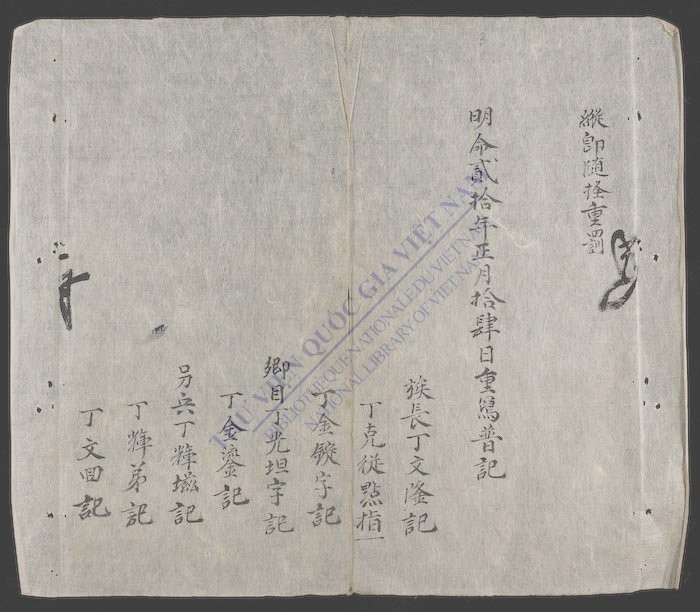 縱即随按重罰
明命貳拾年正月拾肆日重寫普記
族長丁文隆記
丁克從點指一
丁金鏇字記
鄉目丁光坦字記
丁金鎏記
另兵丁輝㙜記
丁輝弟記
丁文回記
THƯ VIỆN QUỐC GIA VIỆT NAM
BIBLIOTHÈQUE NATIONALE DU VIETNAM
NATIONAL LIBRARY OF VIETNAM